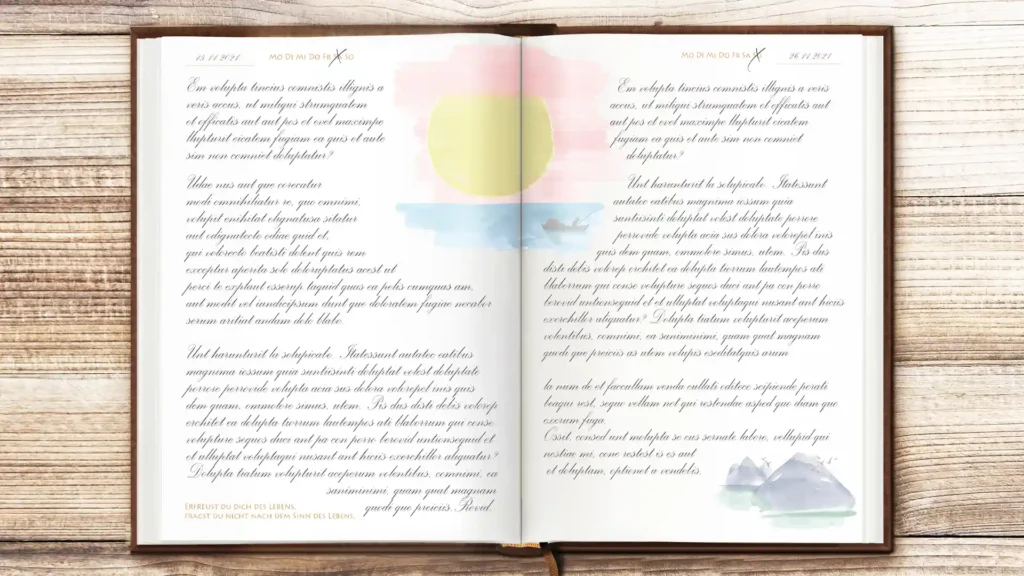 MO DI MI DO FR SA SO
Em volupta tincius comnistis illignis a
veris accus, ut miliqui strumquatem
et officatis aut aut pos et evel maximpe
llupturit eicatem fugiam ea quis et aute
sim non comniet doluptatur?
Udae nus aut que corecatur
modi omnihitatur re, quo omnimi,
volupit enihitat elignatusa sitatur
aut odignatecto odiae quid et,
qui volorecto beatisti dolent quis rem
exceptur aperita sole doloruptatus acest ut
perci te explaut esserup taquid quas ea pelis cumquas am,
aut modit vel iandicipsum dunt que doloratem fugiae nocabor
serum aritiat andam dolo blabo.
Unt harunturit la solupicabo. Itatessunt autatec eatibus
magnima iossum quia suntiisinti doluptat volest doluptate
porrore perrovide volupta acia sus dolora volorepel inis quis
dem quam, ommolore simus, utem. Pis dus disti debis volorep
erchitet ea dolupta tiorrum lautempos ate blaborrum qui conse
volupture sequos duci ant pa con perro berovid untionsequid et
et ulluptat voluptaqui nusant ant hiciis exerchiller aliquatur?
Dolupta tiatum volupturit aceperum volentibus, comnimi, ea
saniminimi, quam quat magnam
quodi que preiciis. Rovid.
ERFREUST DU DICH DES LEBENS,
FRAGST DU NICHT NACH DEM SINN DES LEBENS.
MO DI MI DO FR SA SO
Em volupta tincius comnistis illignis a veris
accus, ut miliqui strumquatem et officatis aut
aut pos et evel maximpe llupturit eicatem
fugiam ea quis et aute sim non comniet
doluptatur?
Unt harunturit la solupicabo. Itatessunt
autatec eatibus magnima iossum quia
suntiisinti doluptat volest doluptate porrore
perrovide volupta acia sus dolora volorepel inis
quis dem quam, ommolore simus, utem. Pis dus
disti debis volorep erchitet ea dolupta tiorrum lautempos ate
blaborrum qui conse volupture sequos duci ant pa con perro
berovid untionsequid et et ulluptat voluptaqui nusant ant hiciis
exerchiller aliquatur? Dolupta tiatum volupturit aceperum
volentibus, comnimi, ea saniminimi, quam quat magnam
quodi que preiciis as atem volupis eseditatquis arum
la num de et faccullam venda cullati oditece scipiende perati
beaqui rest, sequo vollam net qui restendae asped que diam que
exerum fuga.
Ossit, consed unt molupta se cus sernate labore, vollupid qui
nestiae mi, cone restest is es aut
et doluptam, optionet a vendelis.